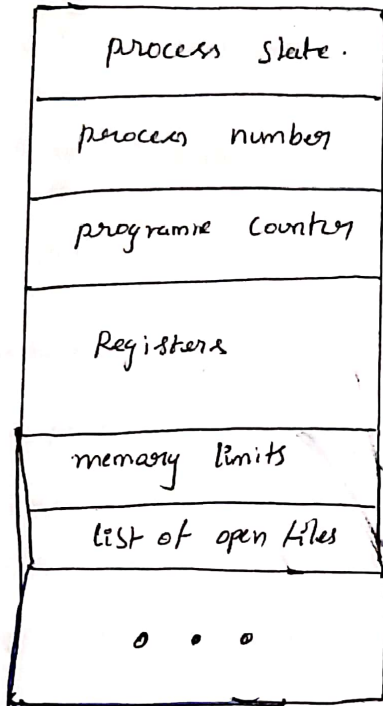 process state.
process number
programme counter
Registers
memary limits
list of open files
• • •